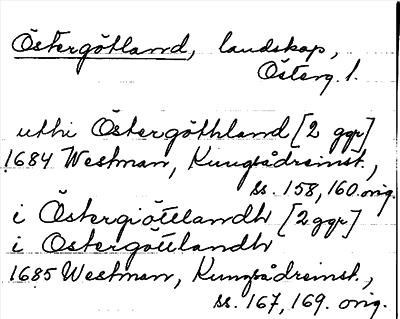 Östergötland, landskap,
Österg. l.
uthi Östergöthland [2 ggr]
1684 Westman, Kungsådreinst.,
ss. 158, 160 orig.
i Östergiöttlandh [2 ggr]
i Östergöttlandh
1685 Westman, Kungsådreinst.,
ss. 167, 169. orig.